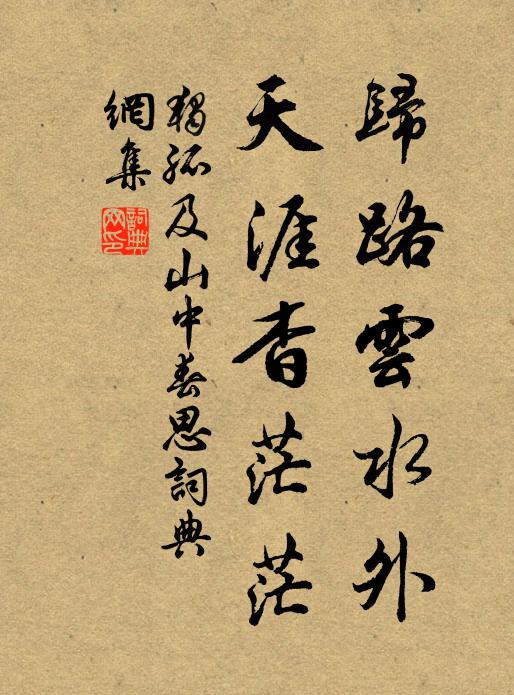 歸路雲水外
天涯杳茫茫
獨孤及山中春思詞典
網集
詞典
网印